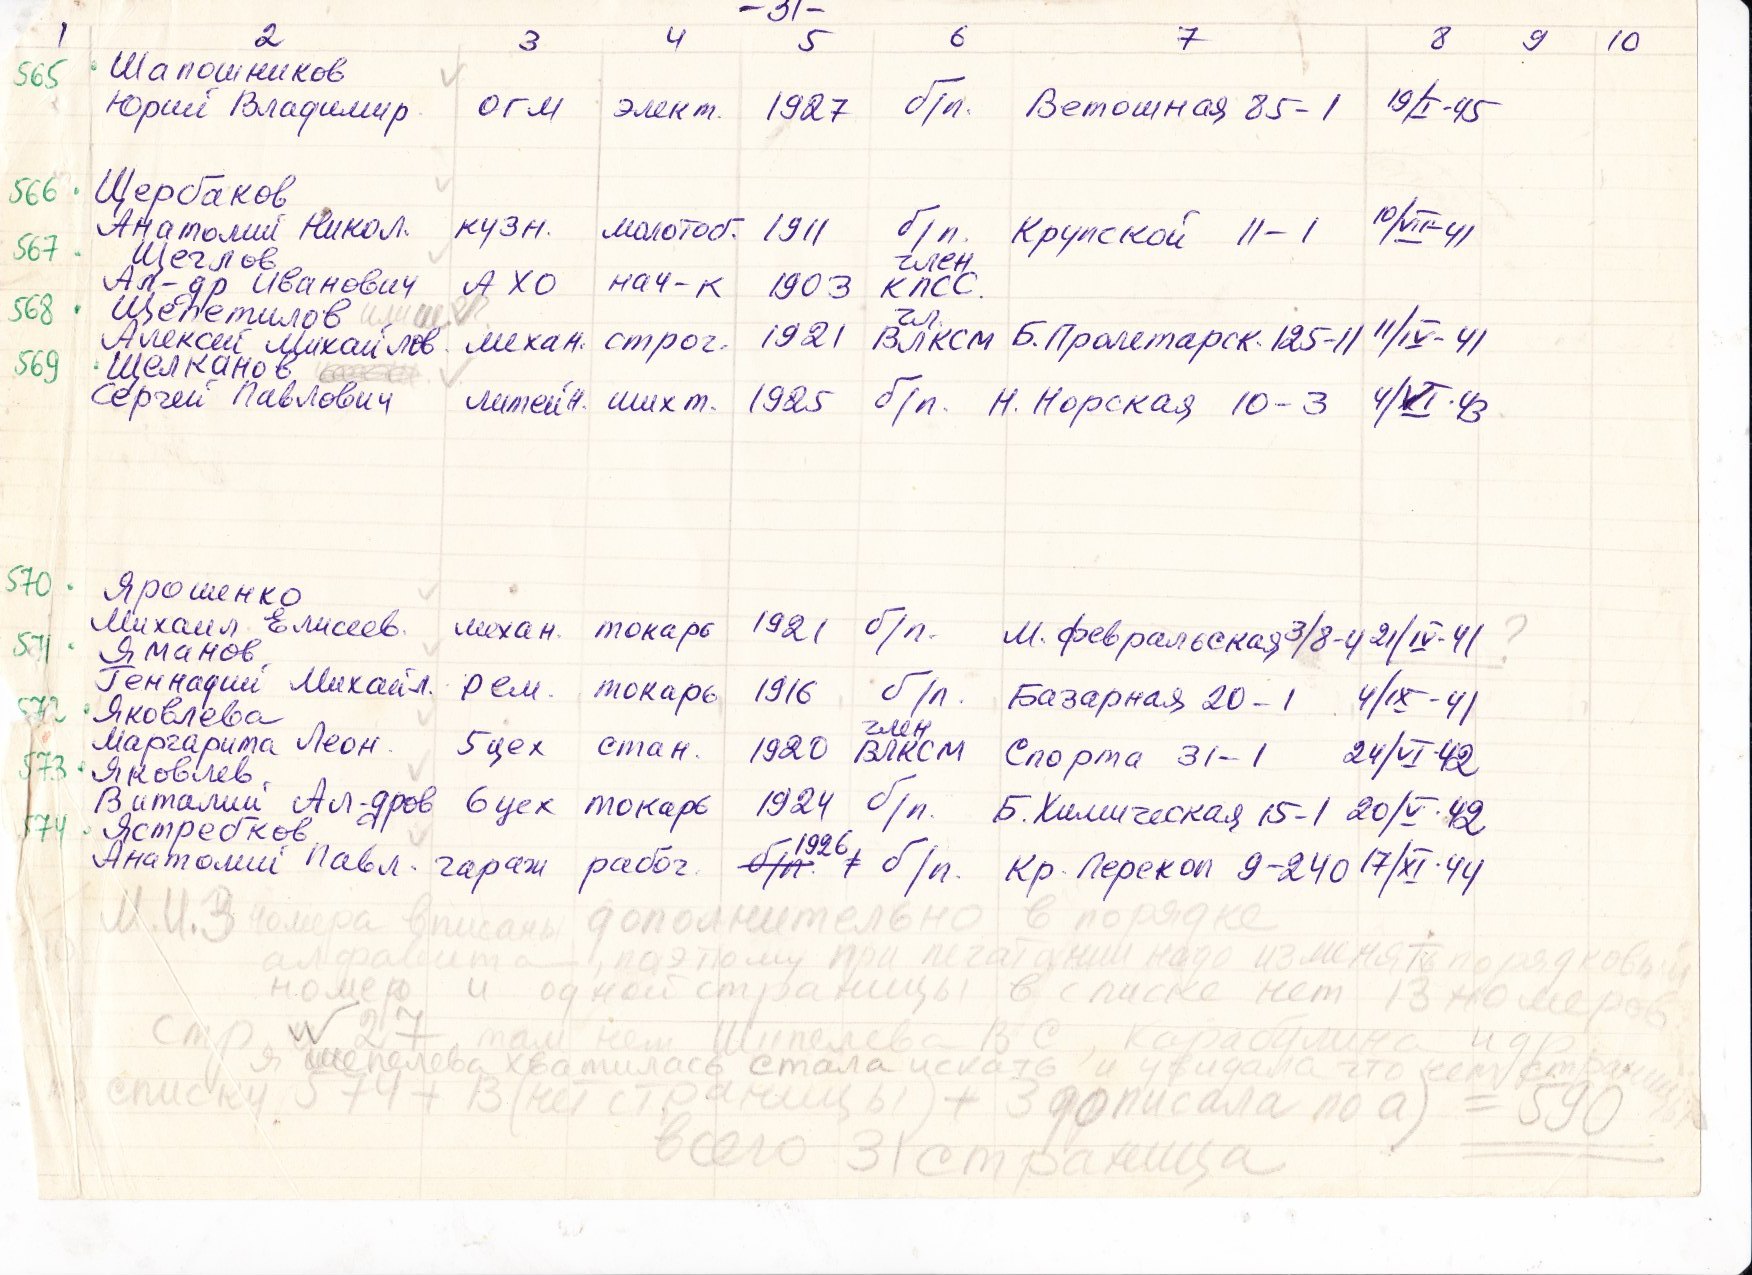 -31-
1 2 3 4 5 6 7 8 9 10
565 Шапошников
Юрий Владимир. ОГМ элект. 1927 б/п. Ветошная 85-1 19/I-45
566. Щербаков
Анатолий Никол. кузн. молотоб. 1911 б/п. Крупской 11-1 10/VII-41
567. Щеглов член
Ал-др Иванович АХО нач-к 1903 КПСС.
568. Щепетилов или чл.
Алексей Михайлов. механ. строг. 1921 ВЛКСМ Б.Пролетарск. 125-11 11/IV-41
569 Щелканов
Сергей Павлович литейн. шихт. 1925 б/п. Н. Норская 10-3 4/VI-43
570. Ярошенко
Михаил Елисеев. механ. токарь 1921 б/п. М. Февральская 3/8-4 21/IV-41 ?
571. Яманов
Геннадий Михайл. рем. токарь 1916 б/п. Базарная 20-1 4/IX-41
572 Яковлева член
Маргарита Леон. 5цех стан. 1920 ВЛКСМ Спорта 31-1 24/VI-42
573. Яковлев
Виталий Ал-дров 6цех токарь 1924 б/п. Б.Химическая 15-1 20/V-42
574. Ястребков
Анатолий Павл. гараж рабоч. б/п. 1926 б/п. Кр. Перекоп 9-240 17/XI-44
М.И.З номера вписаны дополнительно в порядке
алфавита, поэтому при печатании надо изменять порядковый
номер и одной страницы в списке нет 13 номеров
стр 27 там нет Шипелева В С, Карабулина и др
я шепелева хватилась стала искать и увидала что нет страницы
по списку 574 + 13 (нет страницы) + 3 дописала по а) = 590
всего 31 страница